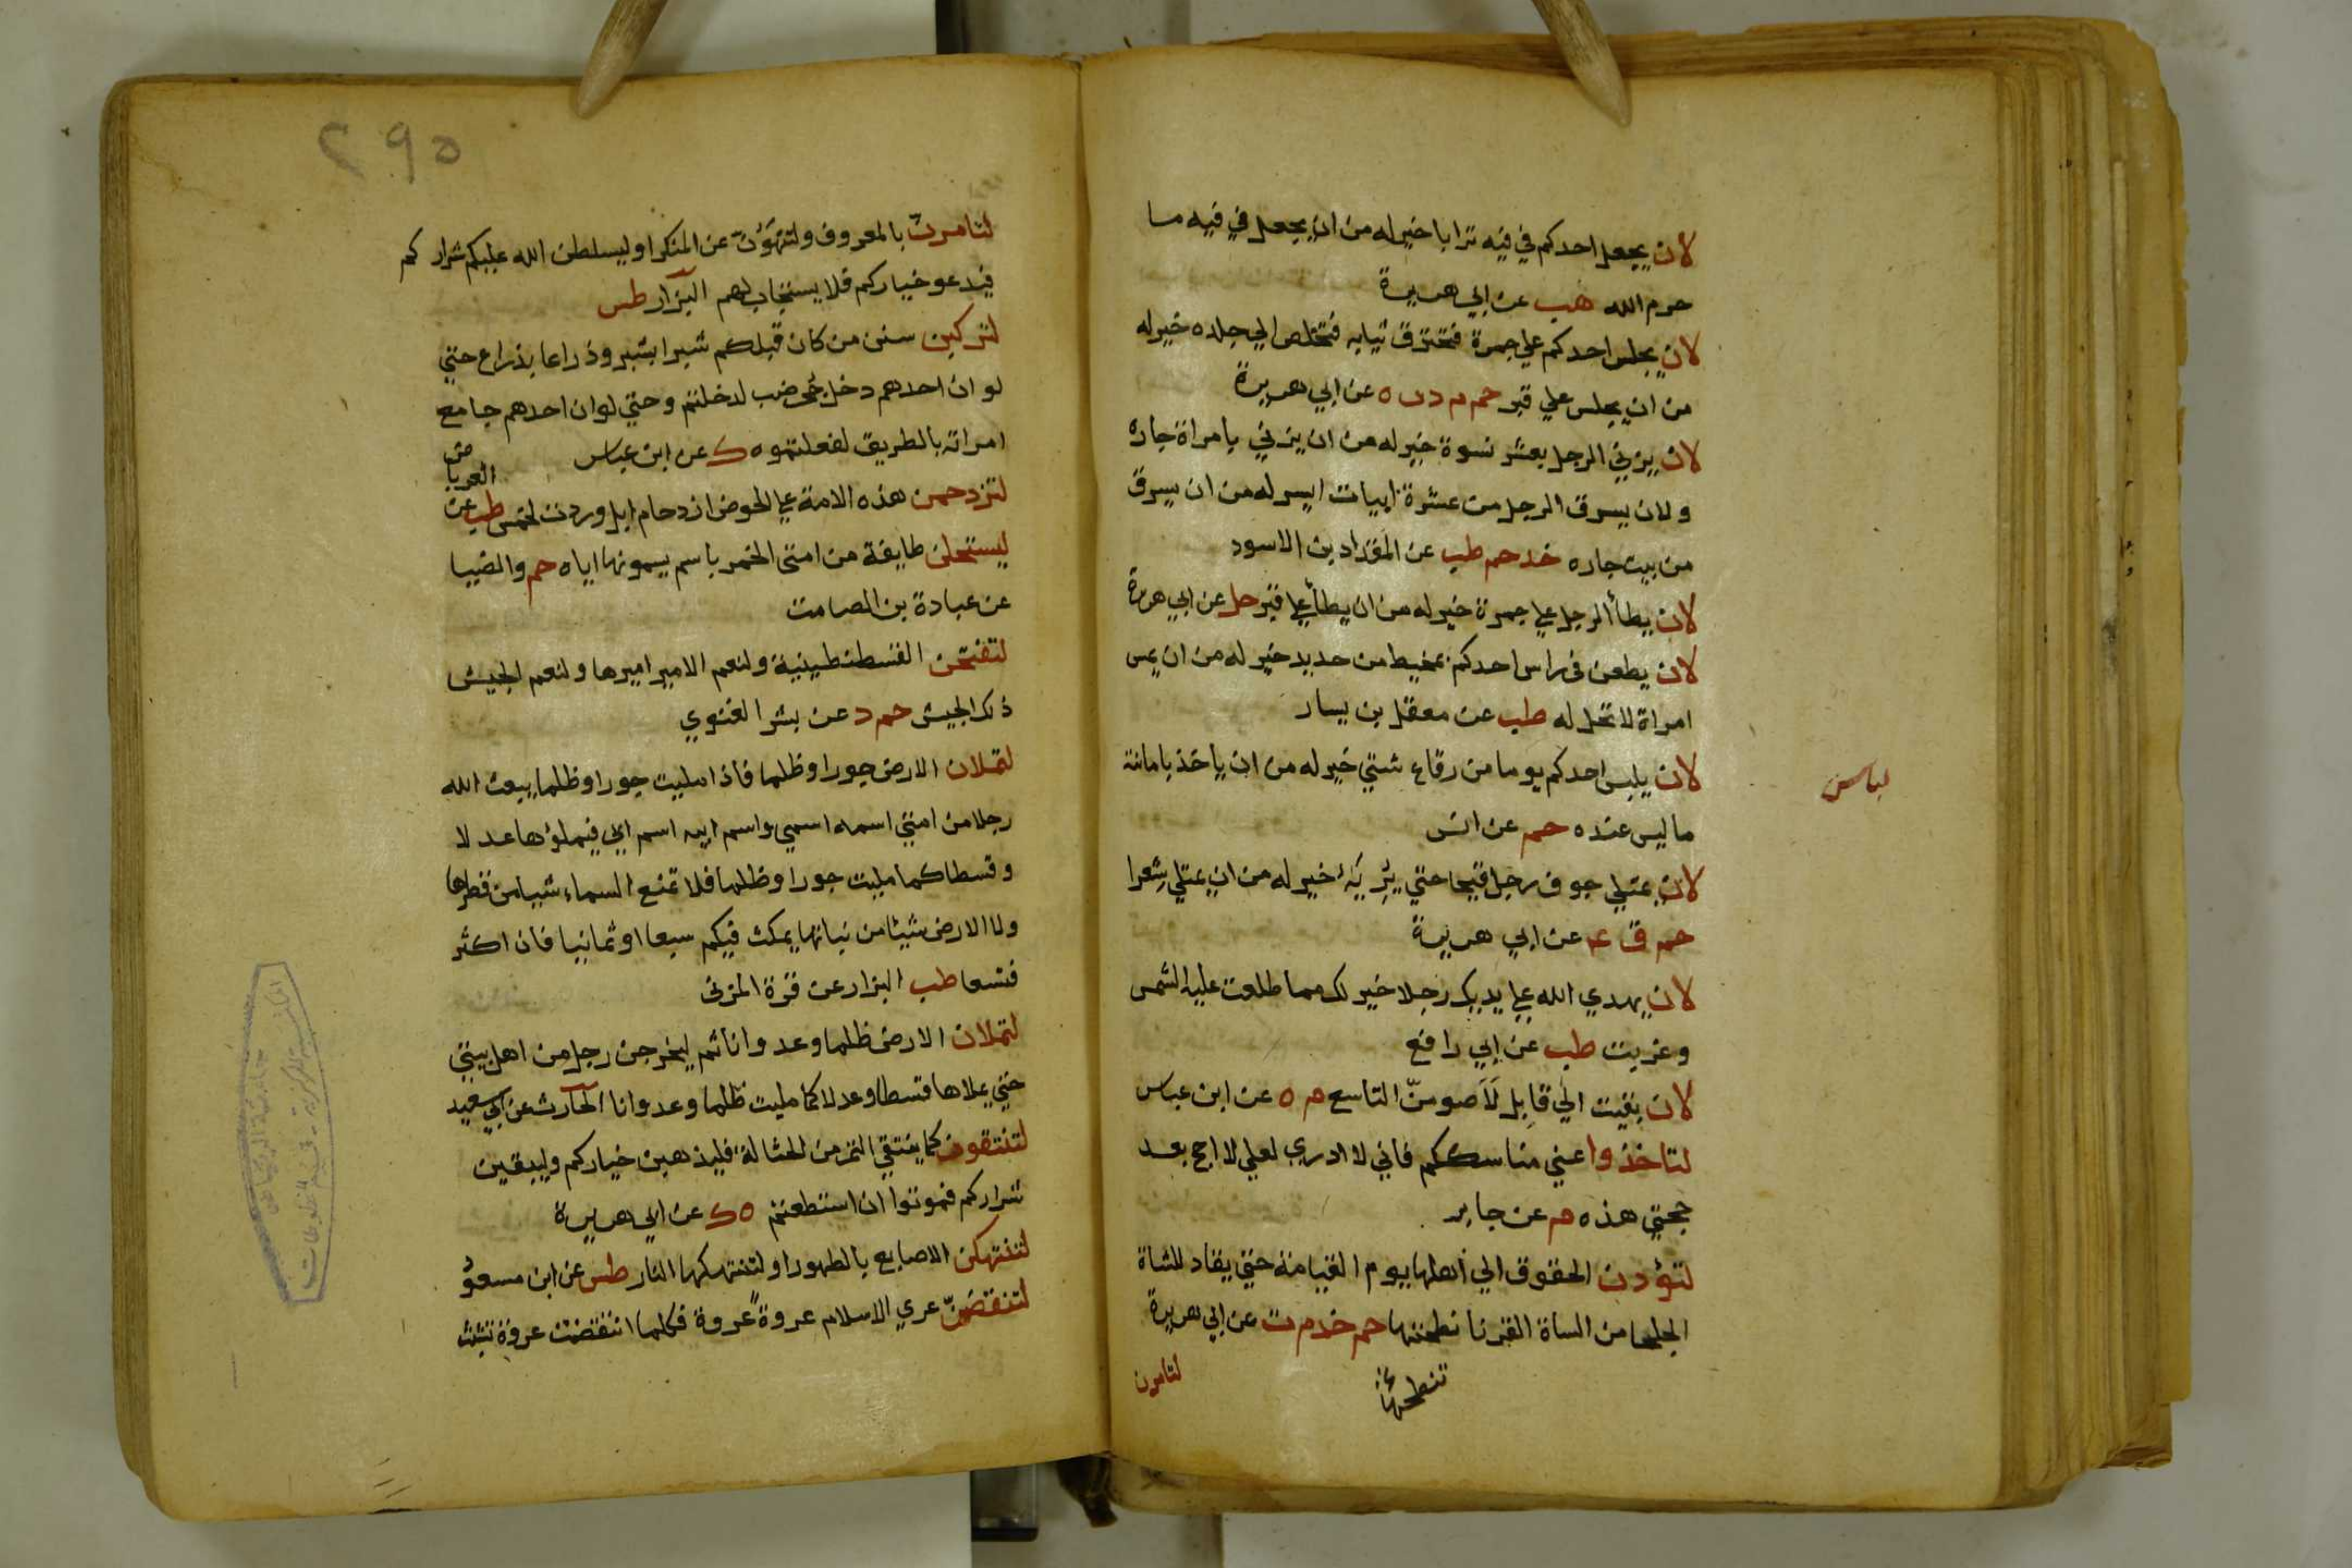 لان يجعل احدكم في فيه ترابا خير له من ان يجعل في فيه ما
حرم الله هب عن ابي هريرة
لان يجلس احدكم علي جمرة فتحترق ثيابه فتخلص الي جلده خير له
من ان يجلس علي قبر حم م د ن ه عن ابي هريرة
لان يزني الرجل بعشر نسوة خير له من ان يزني بامراة جاره
ولان يسرق الرجل من عشرة ابيات ايسر له من ان يسرق
من بيت جاره خد حم طب عن المقداد بن الاسود
لان يطأ الرجل علي جمرة خير له من ان يطأ علي قبر حل عن ابي هريرة
لان يطعن في راس احدكم بمخيط من حديد خير له من ان يمس
امراة لا تحل له طب عن معقل بن يسار
لان يلبس احدكم يوما من رقاع شتي خير له من ان ياخذ بامانته
ما ليس عنده حم عن انس
لان يمتلي جوف رجل قيحا حتي يَرِيَهُ خير له من ان يمتلي شِعرا
حم ق عه عن ابي هريرة
لان يهدي الله علي يديك رجلا خير لك مما طلعت عليه الشمس
وغربت طب عن ابي رافع
لان بقيت الي قابل لَاَصومنّ التاسع م ه عن ابن عباس
لتاخذوا عني مناسككم فاني لا ادري لعلي لا احج بعد
حجتي هذه م عن جابر
لتؤدن الحقوق الي أهلها يوم القيامة حتي يقاد للشاة
الجلحا من الساة القرنا تطحنها حم خد م ت عن ابي هريرة
تنطحها
لتامرن
لباس
٢٩٥
لتامرنّ بالمعروف ولتنهَوُنّ عن المنكر او ليسلطن الله عليكم شراركم
فيدعو خياركم فلا يستجاب لهم البزار طس
لتركبن سنن من كان قبلكم شبرا بشبر وذراعا بذراع حتي
لو ان احدهم دخل جحر ضب لدخلتم وحتي لو ان احدهم جامع
امراته بالطريق لفعلتموه ك عن ابن عباس
لتزدحمن هذه الامة علي الحوض ازدحام ابل وردت لخمس طب عن
العربا
ليستحلن طايفة من امتي الخمر باسم يسمونها اياه حم والضيا
عن عبادة بن الصامت
لتفتحن القسطنطينية ولنعم الامير اميرها ولنعم الجيش
ذلك الجيش حم د عن بشر الغنوي
لتملان الارض جورا وظلما فاذا مليت جورا وظلما يبعث الله
رجلا من امتي اسمه اسمي واسم ابيه اسم ابي فيملؤها عدلا
وقسطا كما مليت جورا وظلما فلا تمنع السماء شيا من قطرها
ولا الارض شيئا من نباتها يمكث فيكم سبعا او ثمانيا فان اكثر
فتسعا طب البزار عن قرة المزني
لتملان الارض ظلما وعدوانا ثم ليخرجن رجل من اهل بيتي
حتي يملاها قسطا وعدلا كما مليت ظلما وعدوانا الحارث عن ابي سعيد
لتنتقون كما ينتقي التمر من الحثالة فليذهبن خياركم وليبقين
شراركم فموتوا ان استطعتم ه ك عن ابي هريرة
لتنتهكن الاصابع بالطهور او لتنتهكها النار طس عن ابن مسعو
لتنقضنّ عري الاسلام عروةً عروة فكلما انتقضت عروة تثبث